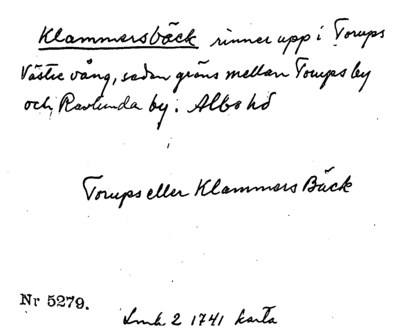 Klammersbäck rinner upp i Torups
Västre vång, sedan gräns mellan Torups by
och Ravlunda by. Albo hd
Torups eller Klammers Bäck
Nr 5279.
Lmk 2 1741 karta